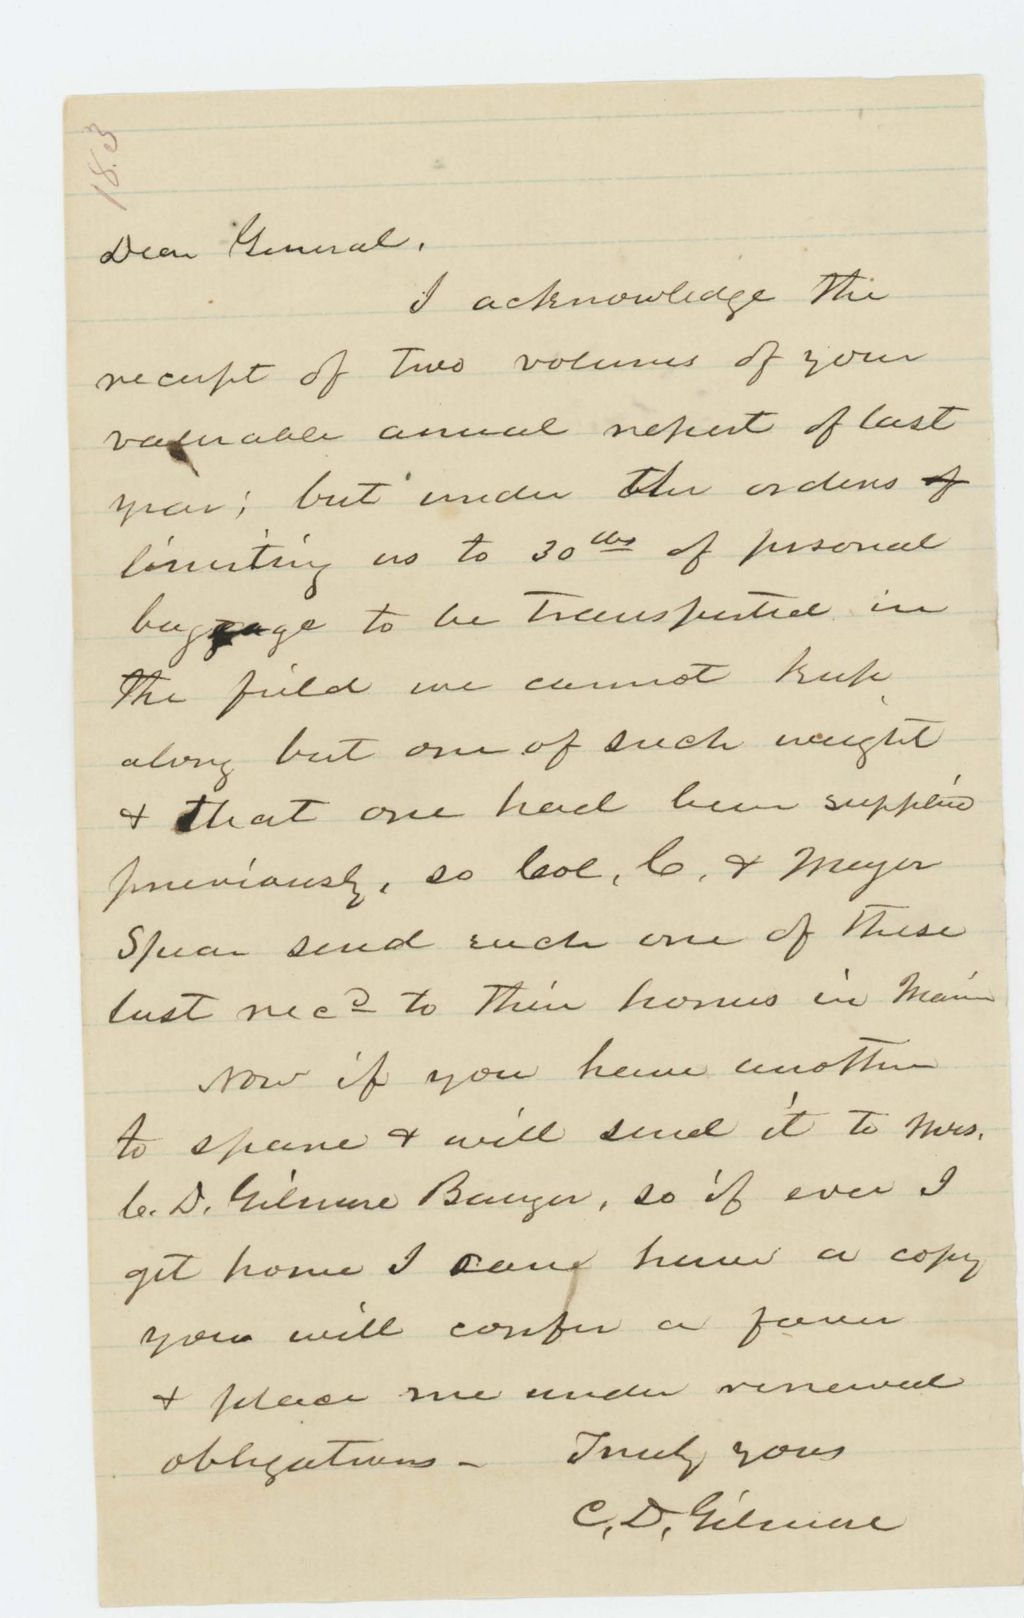 18.3
Dear General,
I acknowledge the
receipt of two volumes of your
valuable annual report of last
year; but under the orders of
limiting us to 30 lbs of personal
baggage to be transported in
the field we cannot keep
along but one of such weight
& that one had been supplied
previously, so Col, C, & Mayor
Spear send each one of these
last recd to their homes in Maine
Now if you have another
to spare & will send it to Mrs.
C. D. Gilmore Bangor, so if ever I
get home I can have a copy
you will confer a favor
& place me under renewed
obligations - Truly yours
C. D. Gilmore